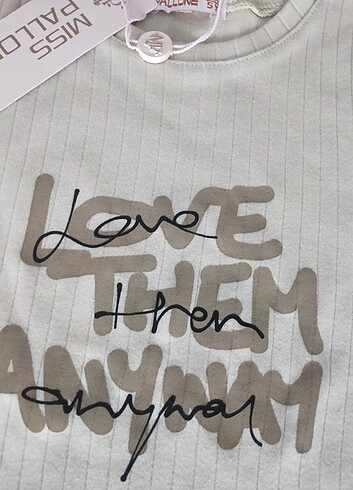 MISS
PALLONE
LOVE
Love
THEM
them
ANYWAY
anyway